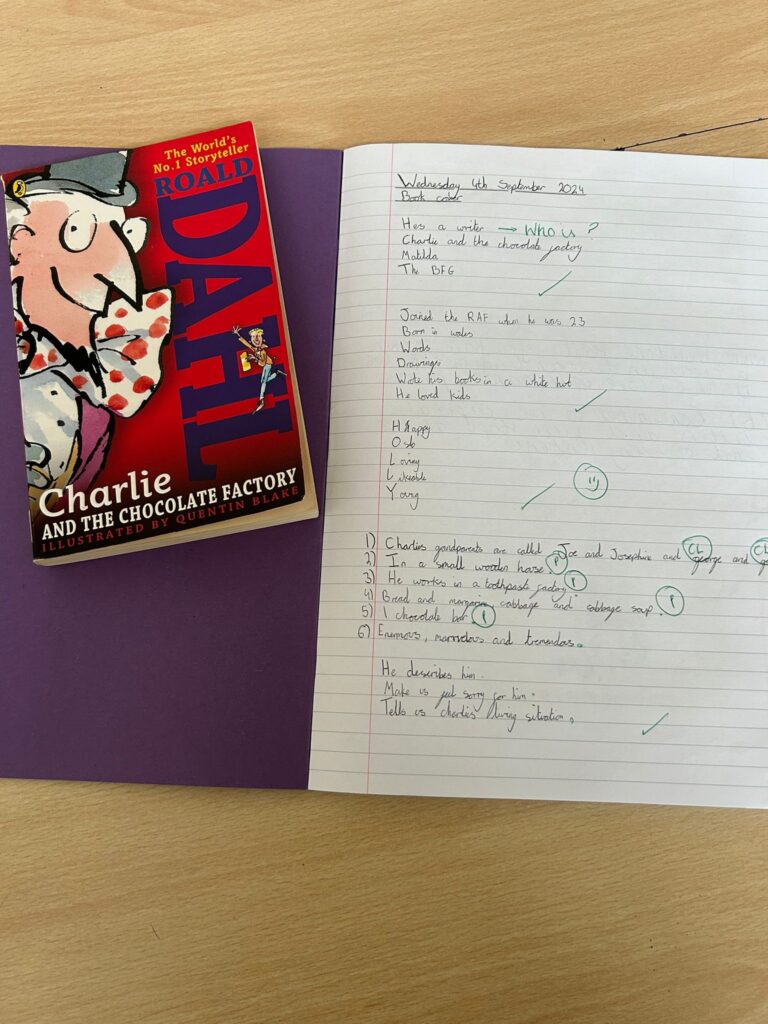 The World's
No.1 Storyteller
ROALD
DAHL
Charlie
AND THE CHOCOLATE FACTORY
ILLUSTRATED BY QUENTIN BLAKE
Wednesday 4th September 2024
Book cover
Hes a writer → Who is?
Charlie and the chocolate factory
Matilda
The BFG
Joined the RAF when he was 23
Born in wales
Words
Drawings
Wrote his books in a white hut
He loved kids
Happy
Oslo
Loving
Likeable
Young
1) Charlies grandparents are called Joe and Josephine and CL george and CL
2) In a small wooden house. P
3) He works in a toothpaste factory. P
4) Bread and margarine, cabbage and cabbage soup. P
5) 1 chocolate bar. P
6) Enormous, marvelous and tremendous.
He describes him.
Make us feel sorry for him.
Tells us charlies living situation.